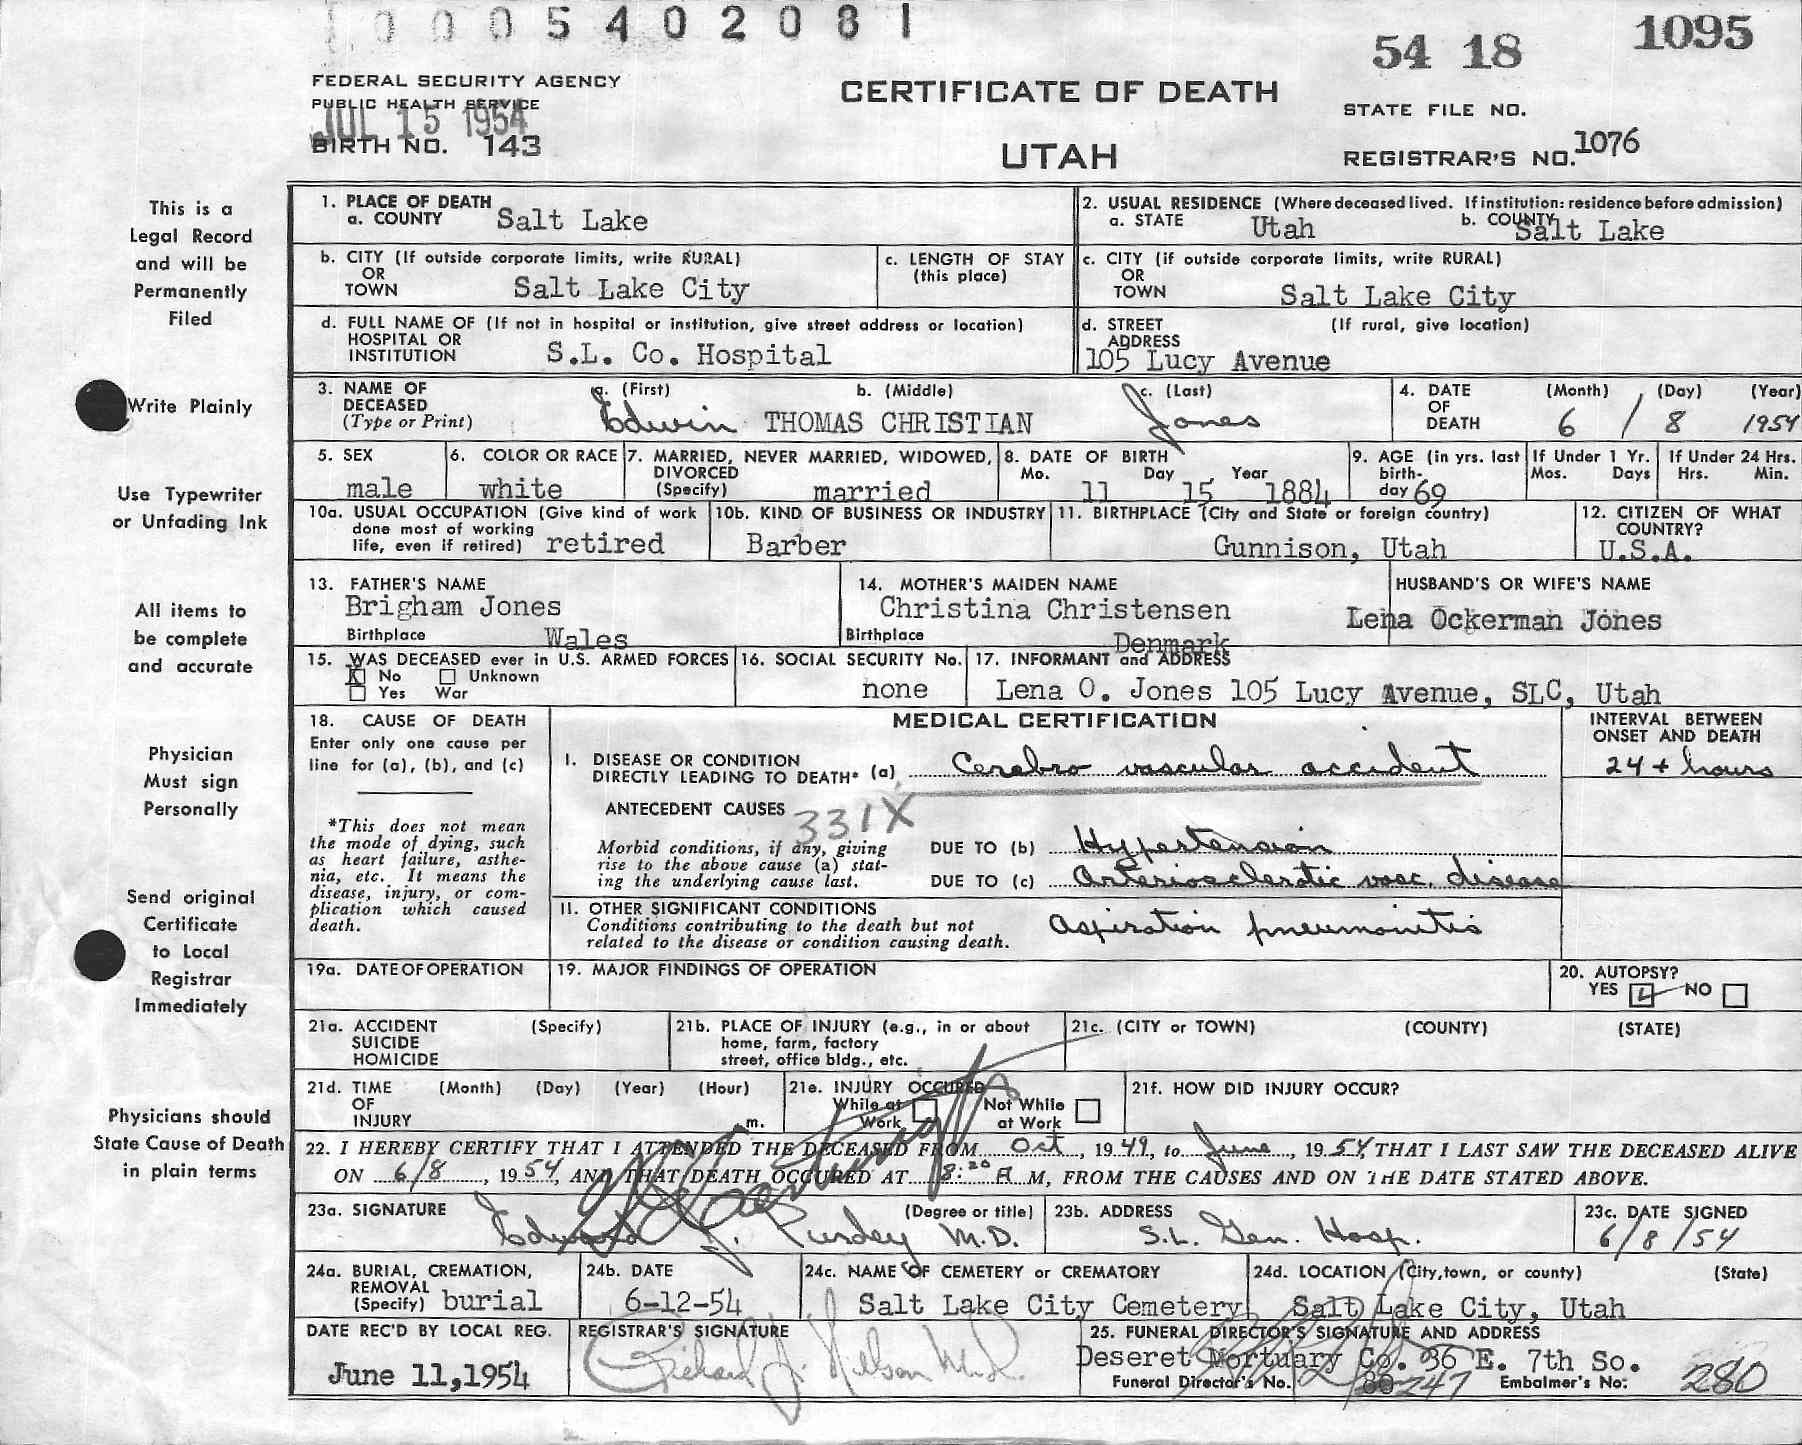 0 0 0 5 4 0 2 0 8 1
54 18 1095
FEDERAL SECURITY AGENCY
PUBLIC HEALTH SERVICE
JUL 15 1954
BIRTH NO. 143
CERTIFICATE OF DEATH
UTAH
STATE FILE NO.
REGISTRAR'S NO. 1076
This is a
Legal Record
and will be
Permanently
Filed
Write Plainly
Use Typewriter
or Unfading Ink
All items to
be complete
and accurate
Physician
Must sign
Personally
Send original
Certificate
to Local
Registrar
Immediately
Physicians should
State Cause of Death
in plain terms
1. PLACE OF DEATH
a. COUNTY Salt Lake
2. USUAL RESIDENCE (Where deceased lived. If institution: residence before admission)
a. STATE Utah b. COUNTY Salt Lake
b. CITY (If outside corporate limits, write RURAL)
OR
TOWN Salt Lake City
c. LENGTH OF STAY
(this place)
c. CITY (if outside corporate limits, write RURAL)
OR
TOWN Salt Lake City
d. FULL NAME OF (If not in hospital or institution, give street address or location)
HOSPITAL OR
INSTITUTION S.L. Co. Hospital
d. STREET (If rural, give location)
ADDRESS
105 Lucy Avenue
3. NAME OF
DECEASED
(Type or Print)
a. (First) b. (Middle) c. (Last)
Edwin THOMAS CHRISTIAN Jones
4. DATE
OF
DEATH
(Month) (Day) (Year)
6 / 8 1954
5. SEX
male
6. COLOR OR RACE
white
7. MARRIED, NEVER MARRIED, WIDOWED,
DIVORCED
(Specify) married
8. DATE OF BIRTH
Mo. Day Year
11 15 1884
9. AGE (in yrs. last
birth-
day 69
If Under 1 Yr.
Mos. Days
If Under 24 Hrs.
Hrs. Min.
10a. USUAL OCCUPATION (Give kind of work
done most of working
life, even if retired) retired
10b. KIND OF BUSINESS OR INDUSTRY
Barber
11. BIRTHPLACE (City and State or foreign country)
Gunnison, Utah
12. CITIZEN OF WHAT
COUNTRY?
U.S.A.
13. FATHER'S NAME
Brigham Jones
Birthplace Wales
14. MOTHER'S MAIDEN NAME
Christina Christensen
Birthplace Denmark
HUSBAND'S OR WIFE'S NAME
Lena Ockerman Jones
15. WAS DECEASED ever in U.S. ARMED FORCES
X No Unknown
Yes War
16. SOCIAL SECURITY No.
none
17. INFORMANT and ADDRESS
Lena O. Jones 105 Lucy Avenue, SLC, Utah
18. CAUSE OF DEATH
Enter only one cause per
line for (a), (b), and (c)
*This does not mean
the mode of dying, such
as heart failure, asthe-
nia, etc. It means the
disease, injury, or com-
plication which caused
death.
MEDICAL CERTIFICATION
INTERVAL BETWEEN
ONSET AND DEATH
I. DISEASE OR CONDITION
DIRECTLY LEADING TO DEATH* (a) Cerebro vascular accident
24 + hours
ANTECEDENT CAUSES
331X
Morbid conditions, if any, giving
rise to the above cause (a) stat-
ing the underlying cause last.
DUE TO (b) Hypertension
DUE TO (c) Arteriosclerotic vasc. disease
II. OTHER SIGNIFICANT CONDITIONS
Conditions contributing to the death but not
related to the disease or condition causing death.
Aspiration pneumonitis
19a. DATE OF OPERATION
19. MAJOR FINDINGS OF OPERATION
20. AUTOPSY?
YES NO
21a. ACCIDENT (Specify)
SUICIDE
HOMICIDE
21b. PLACE OF INJURY (e.g., in or about
home, farm, factory
street, office bldg., etc.
21c. (CITY or TOWN) (COUNTY) (STATE)
21d. TIME (Month) (Day) (Year) (Hour)
OF
INJURY m.
21e. INJURY OCCURED
While at
Work
Not While
at Work
21f. HOW DID INJURY OCCUR?
22. I HEREBY CERTIFY THAT I ATTENDED THE DECEASED FROM Oct, 1949, to June, 1954, THAT I LAST SAW THE DECEASED ALIVE
ON 6/8, 1954, AND THAT DEATH OCCURED AT 8:20 A M, FROM THE CAUSES AND ON THE DATE STATED ABOVE.
23a. SIGNATURE (Degree or title)
Edward J. Purdey M.D.
23b. ADDRESS
S.L. Gen. Hosp.
23c. DATE SIGNED
6/8/54
24a. BURIAL, CREMATION,
REMOVAL
(Specify) burial
24b. DATE
6-12-54
24c. NAME OF CEMETERY or CREMATORY
Salt Lake City Cemetery
24d. LOCATION (City, town, or county) (State)
Salt Lake City, Utah
DATE REC'D BY LOCAL REG.
June 11, 1954
REGISTRAR'S SIGNATURE
Richard J. Nelson M.D.
25. FUNERAL DIRECTOR'S SIGNATURE AND ADDRESS
Deseret Mortuary Co. 36 E. 7th So.
Funeral Director's No. 747 Embalmer's No: 280